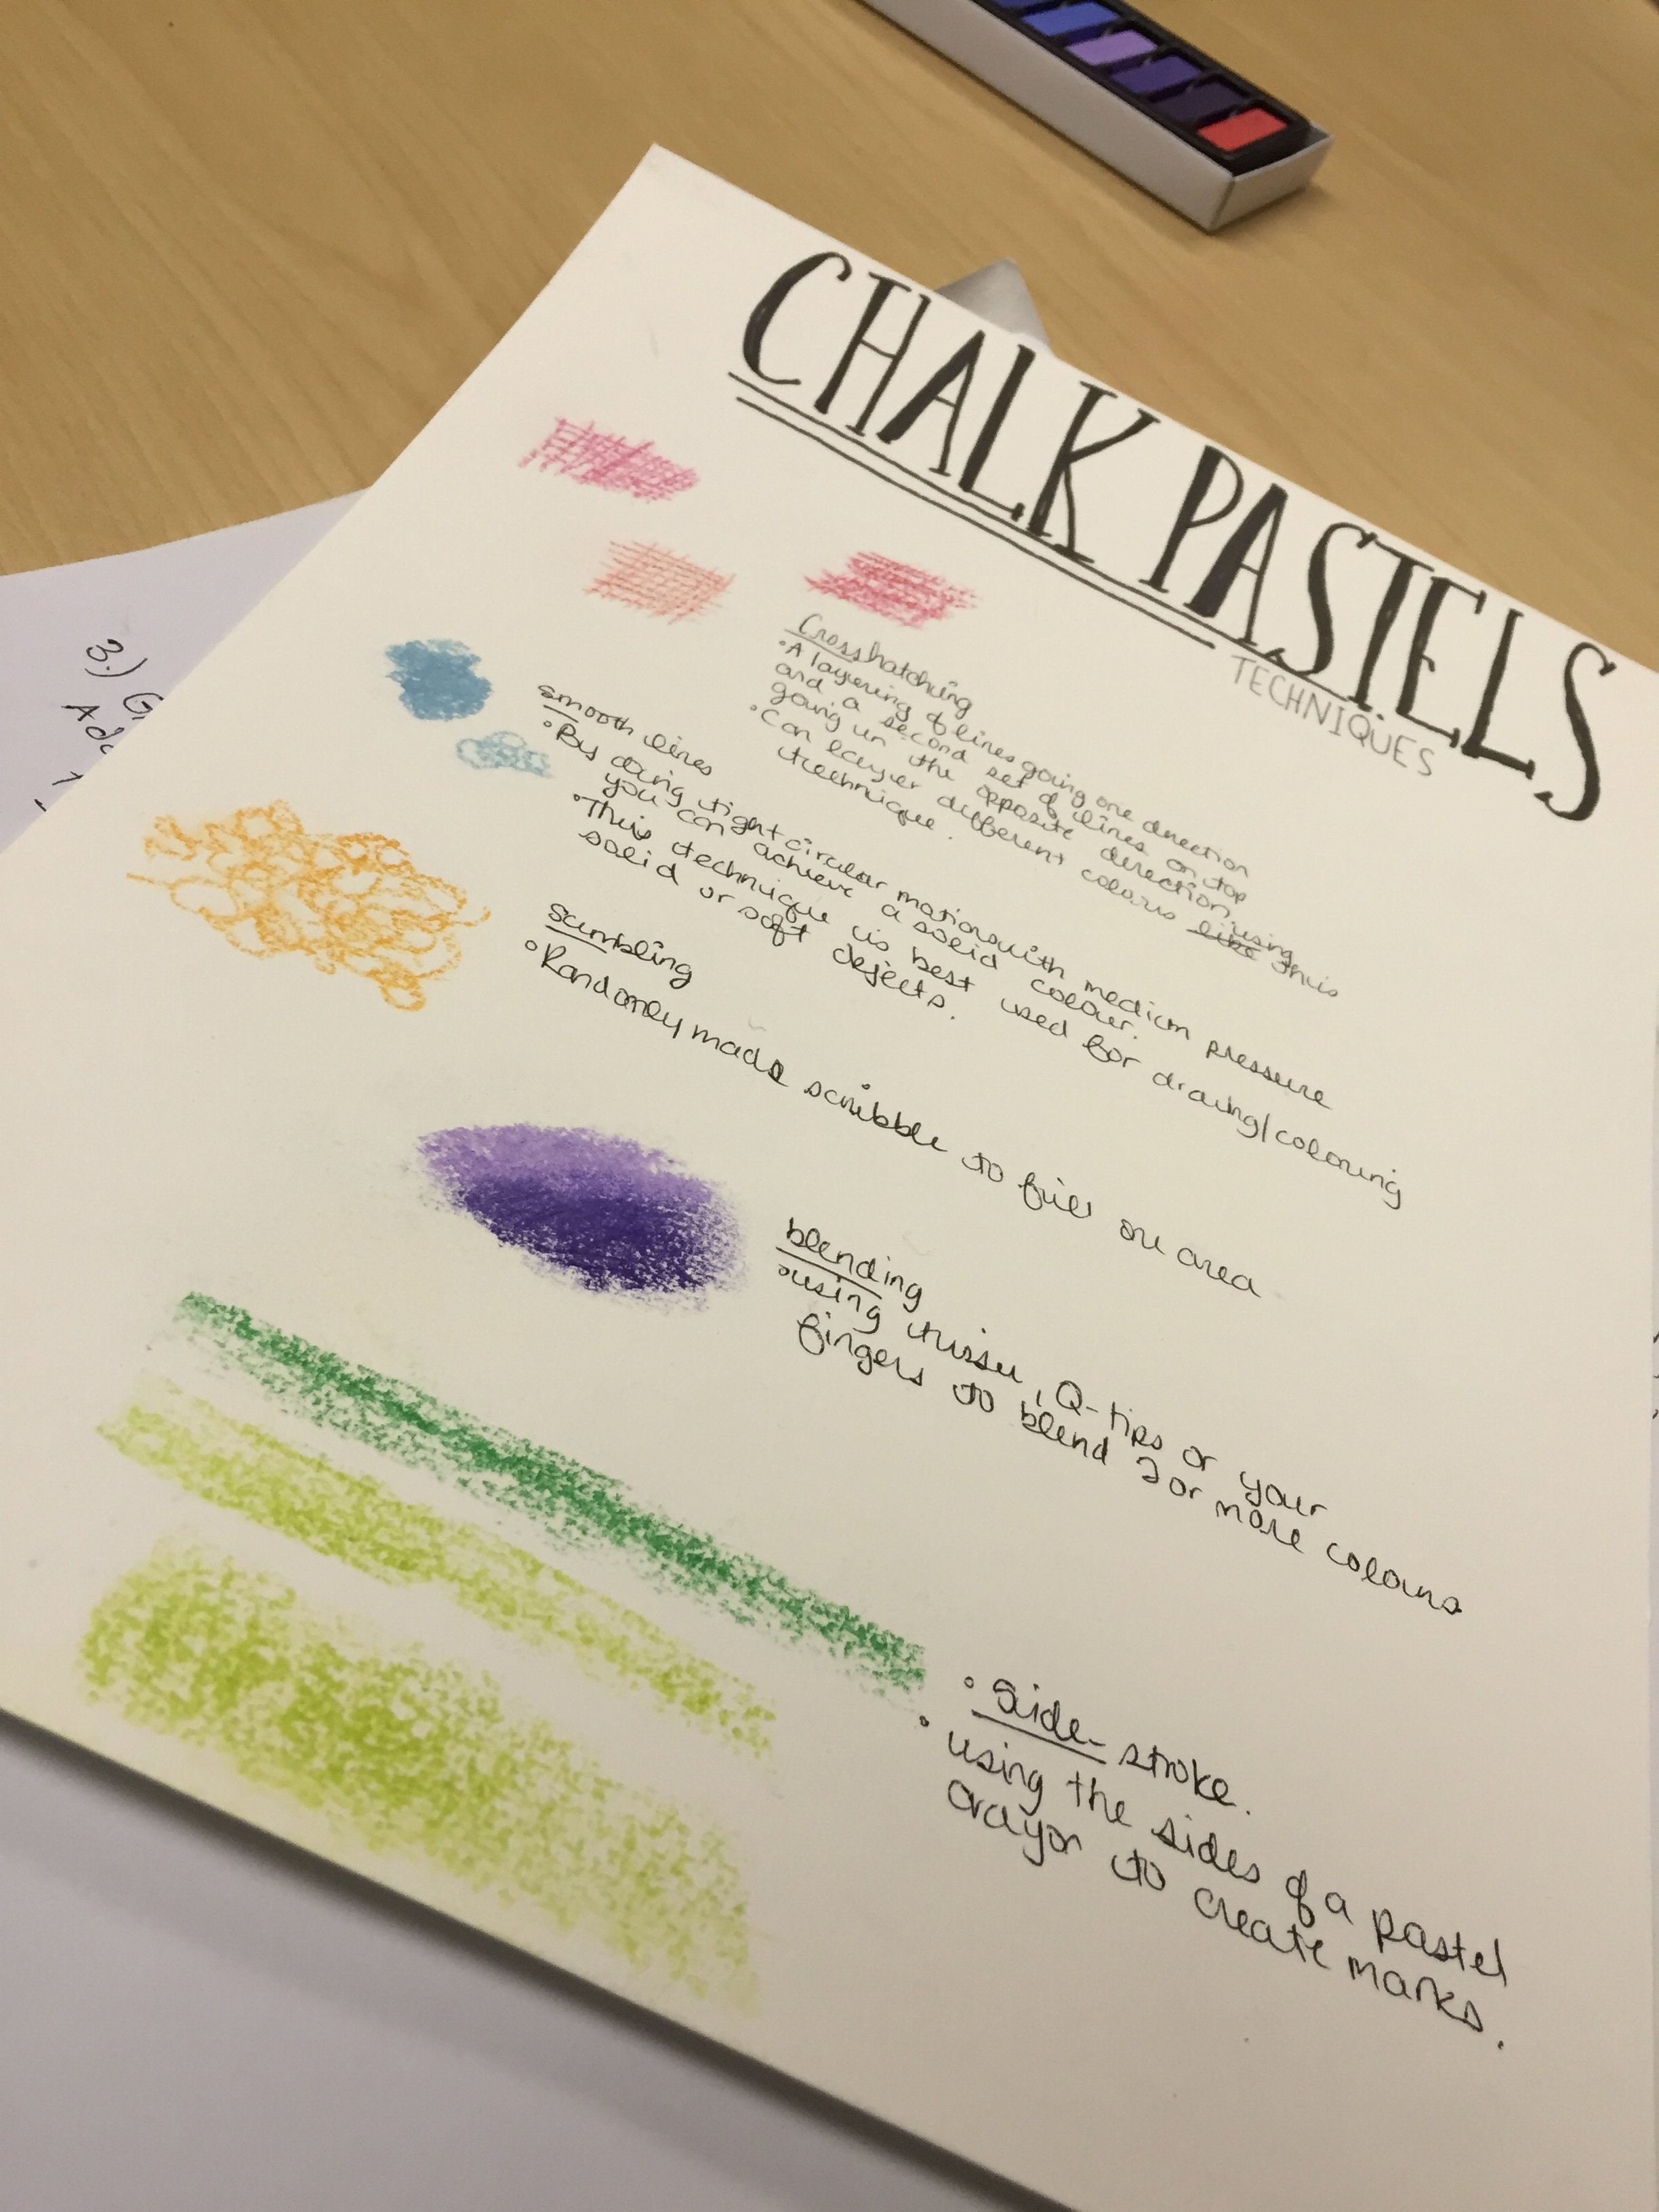 CHALK PASTELS
TECHNIQUES
Crosshatching
• A layering of lines going one direction
and a second set of lines on top
going in the opposite direction.
• Can layer different colours like using this
technique.
smooth lines
• By doing tight circular motions with medium pressure
you can achieve a solid colour.
• This technique is best used for drawing/colouring
solid or soft objects.
Scumbling
• Randomly made scribble to fill an area
blending
• using tissue, Q-tips or your
fingers to blend 2 or more colours
• Side-stroke.
• using the sides of a pastel
crayon to create marks.
3.)